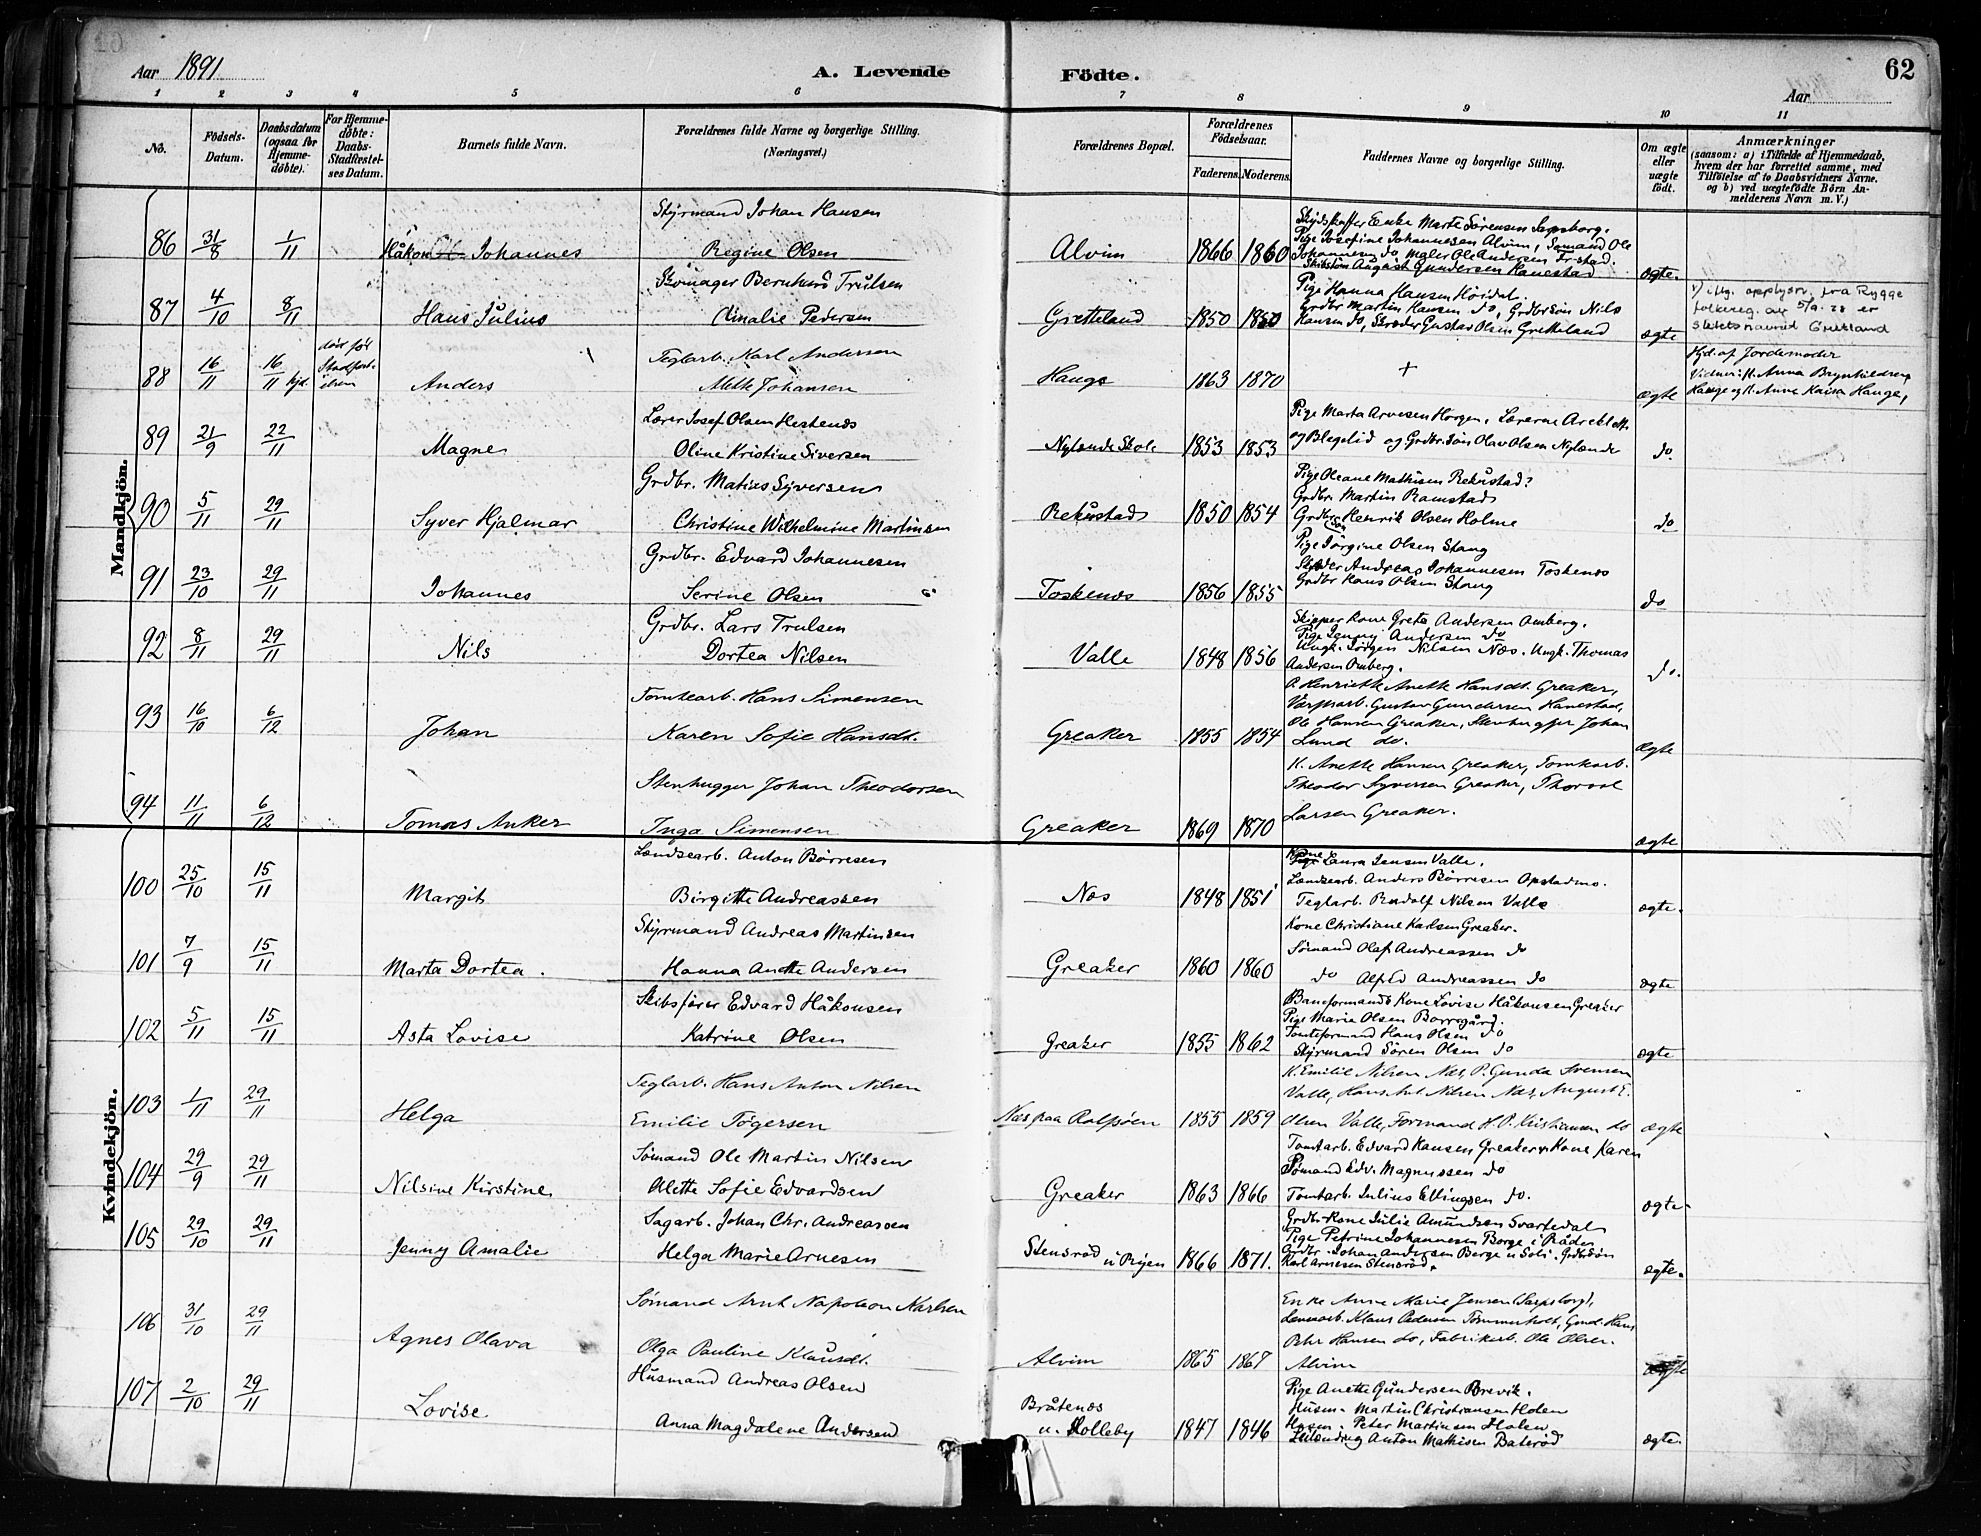 Aar 1891 A. Levende Födte. Aar 62
1 2 3 4 5 6 7 8 9 10 11
No. Födsels-Datum. Daabsdatum (ogsaa for Hjemmedöbte). For Hjemmedöbte: Daabs-Stadfæstelses Datum. Barnets fulde Navn. Forældrenes fulde Navne og borgerlige Stilling. (Næringsvei.) Forældrenes Bopæl. Forældrenes Födselsaar. Faderens. Moderens. Faddernes Navne og borgerlige Stilling. Om ægte eller uægte födt. Anmærkninger (saasom: a) i Tilfælde af Hjemmedaab, hvem der har forrettet samme, med Tilföielse af to Daabsvidners Navne, og b) ved uægtefödte Börn Anmelderens Navn m. V.)
Mandkjön.
Styrmand Johan Hansen
86 31/8 1/11 Håkon Johannes Regine Olsen Alvim 1866 1860 ægte
Enke Marte Sørensen Sarpsborg.
Pige Josefine Johannesen Alvim, Sømand Ole
Johannesen do Maler Ole Andersen Fr-stad.
August Gundersen Hanestad
Bernhard Trulsen
87 4/10 8/11 Hans Julius Amalie Pedersen Gretteland 1850 1850 ægte
Pige Hanna Hansen Høidal.
Grdbr Martin Hansen do, Grdbr Søn Nils
Hansen do, Skræder Gustav Olsen Gretteland
iflg. opplysn. fra Rygge
folkereg. av 5/9. 28 er
slektsnavnet Gretland
Teglarb. Karl Andersen
88 16/11 16/11 hjd. død før Stadfæstelsen Anders Mette Johansen Hauge 1863 1870 + ægte
Hjd. af Jordemoder
Vidner: K. Anna Brynhildsen
Hauge og K. Anne Kaisa Hauge,
Lærer Josef Olsen Hestenes
89 21/9 22/11 Magne Oline Kristine Siversen Nylende Skole 1853 1853 do.
Pige Marta Arvesen Horgen, Lærerne
og Blegslid og Grdbr. Søn Olav Olsen Nylænde
Grdbr. Matias Syversen
90 5/11 29/11 Syver Hjalmar Christine Wilhelmine Martinsen Rekustad 1850 1854 do
Pige Oleane Mathisen Rekustad
Grdbr. Martin Ramstad
Grdbr Søn Henrik Olsen Holme
Grdbr. Edvard Johannesen
91 23/10 29/11 Johannes Serine Olsen Toskenes 1856 1855 do
Pige Jørgine Olsen Stang
Skræder Andreas Johannesen Toskenes
Grdbr Hans Olsen Stang
Grdbr. Lars Trulsen
92 8/11 29/11 Nils Dortea Nilsen Valle 1848 1856 do.
Skipper Kone Grete Andersen Omberg.
Pige Jenny Andersen do
Ungk. Jörgen Nilsen Næs. Ungk. Thomas
Andersen Omberg.
Tomtearb. Hans Simensen
93 16/10 6/12 Johan Karen Sofie Hansdt. Greaker 1855 1854 Ægte
P. Henriette Anette Hansdt. Greaker,
Værftsarb. Gustav Gundersen Hanestad,
Ole Hansen Greaker, Stenhugger Johan
Lund do.
Stenhugger Johan Theodorsen
94 11/11 6/12 Tomas Anker Inga Simensen Greaker 1869 1870 ægte
K. Anette Hansen Greaker, Tomtearb.
Theodor Syversen Greaker, Thorval
Larsen Greaker.
Kvindekjön.
Lændsearb. Anton Børresen
100 25/10 15/11 Margit Birgitte Andreassen Næs 1848 1851 ægte.
Kone Laura Jensen Valle.
Lændsearb. Anders Børresen Opstadmo.
Teglarb. Rudolf Nilsen Valle
Styrmand Andreas Martinsen
101 7/9 15/11 Marta Dortea. Hanna Anette Andersen Greaker 1860 1860 ægte
Kone Christiane Karlsen Greaker.
Sømand Olaf Andreassen do
do Alfred Andreassen do
Skibsfører Edvard Håkonsen
102 5/11 15/11 Asta Lovise Katrine Olsen Greaker 1855 1862 ægte
Baneformands Kone Lovise Håkonsen Greaker
Pige Marie Olsen Borregård.
Tomteformand Hans Olsen do
Styrmand Sören Olsen do
Teglarb. Hans Anton Nilsen
103 1/11 29/11 Helga Emilie Tögersen Næs paa Rolfsöen 1855 1859 ægte
K. Emilie Nilsen Næs, P. Gunda Svensen
Valle, Hans Ant. Nilsen Næs, August E.
Olsen Valle, Formand H. P. Kristiansen do
Sømand Ole Martin Nilsen
104 29/9 29/11 Nilsine Kirstine Olette Sofie Edvardsen Greaker 1863 1866 ægte.
Tomtarb. Edvard Hansen Greaker & Kone Karen
Sømand Edv. Magnussen do
Tomtarb. Julius Ellingsen do.
Sagarb. Johan Chr. Andreassen
105 29/10 29/11 Jenny Amalie Helga Marie Arnesen Stensrød u Ryen 1866 1871. ægte.
Grdbr. Kone Julie Amundsen Svartedal
Pige Petrine Johannesen Borge i Råde
Grdbr. Johan Andersen Berge u Soli. Grdbrsøn
Karl Arnesen Stensrød.
Sømand Arnt Napoleon Karlsen
106 31/10 29/11 Agnes Olava Olga Pauline Klausdt. Alvim 1865 1867 ægte
Enke Anne Marie Jensen (Sarpsborg),
Klaus Pedersen Tømmerholt, Gmd. Hans
Petr Hansen do, Fabrikarb. Ole Olsen
Alvim
Husmand Andreas Olsen
107 2/10 29/11 Lovise Anna Magdalene Andersen Bråtenes u. Holleby 1847 1846 ægte.
Pige Anette Gundersen Brevik.
Husm. Martin Christiansen Holen
Husm. Peter Martinsen Holen
Anton Mathisen Baterød